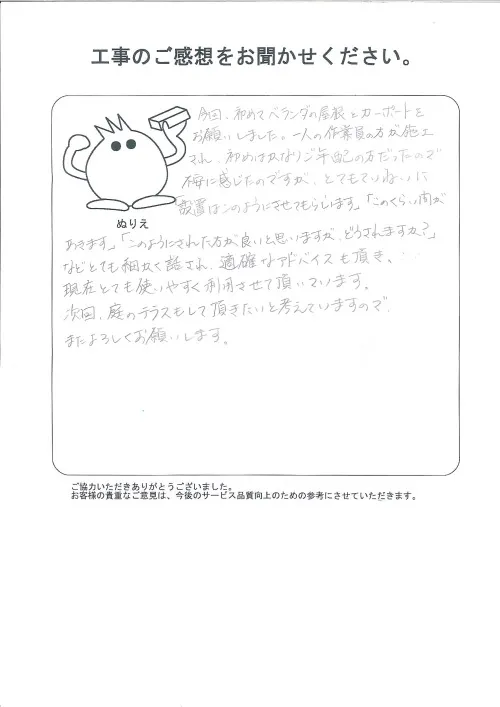 工事のご感想をお聞かせください。
今回、初めてベランダの屋根とカーポートを
お願いしました。一人の作業員の方が施工
され、初めはかなりご年配の方だったので
不安に感じたのですが、とてもていねいに
「設置はこのようにさせてもらいます」「このくらい間が
ぬりえ
あきます」「このようにされた方が良いと思いますが、どうされますか?」
などとても細かく話され、適確なアドバイスも頂き、
現在とても使いやすく利用させて頂いています。
次回、庭のテラスもして頂きたいと考えていますので
またよろしくお願いします。
ご協力いただきありがとうございました。
お客様の貴重なご意見は、今後のサービス品質向上のための参考にさせていただきます。